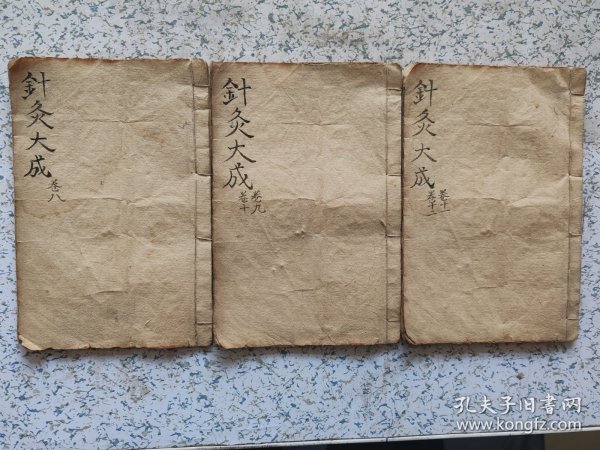 針灸大成
卷八
針灸大成
卷九
卷十
針灸大成
卷十一
卷十二
孔夫子旧書网
www.kongfz.com